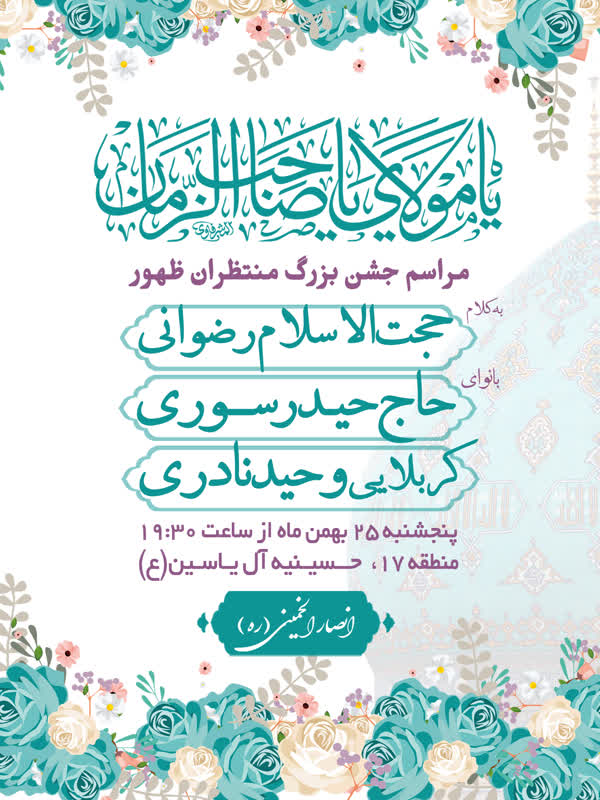 یا مولای یا صاحب الزمان
مراسم جشن بزرگ منتظران ظهور
به کلام
حجت الاسلام رضوانی
بانوای
حاج حیدر سوری
کربلایی وحید نادری
پنجشنبه ۲۵ بهمن ماه از ساعت ۱۹:۳۰
منطقه ۱۷، حسینیه آل یاسین(ع)
انصار الخمینی (ره)